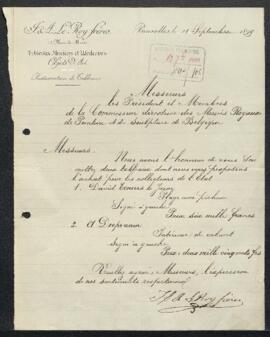 J. & A. Le Roy frères
Bruxelles, le 19 Septembre 1899
Tableaux Anciens et Modernes
Objets d'Art
Restauration de Tableaux
Messieurs
les Président et Membres
de la Commission directrice des Musées Royaux
de Peinture et de Sculpture de Belgique
Messieurs.
Nous avons l'honneur de vous sou-
mettre deux tableaux dont nous vous proposons
l'achat pour les collections de l'Etat
1. David Teniers le Jeune
Signé à gauche
Prix six mille francs
2. A
Intérieur de cabaret
Signé à gauche
Prix, deux mille cinq cents frs
Veuillez agréer, Messieurs, l'expression
de nos sentiments respectueux
J & A Le Roy frères